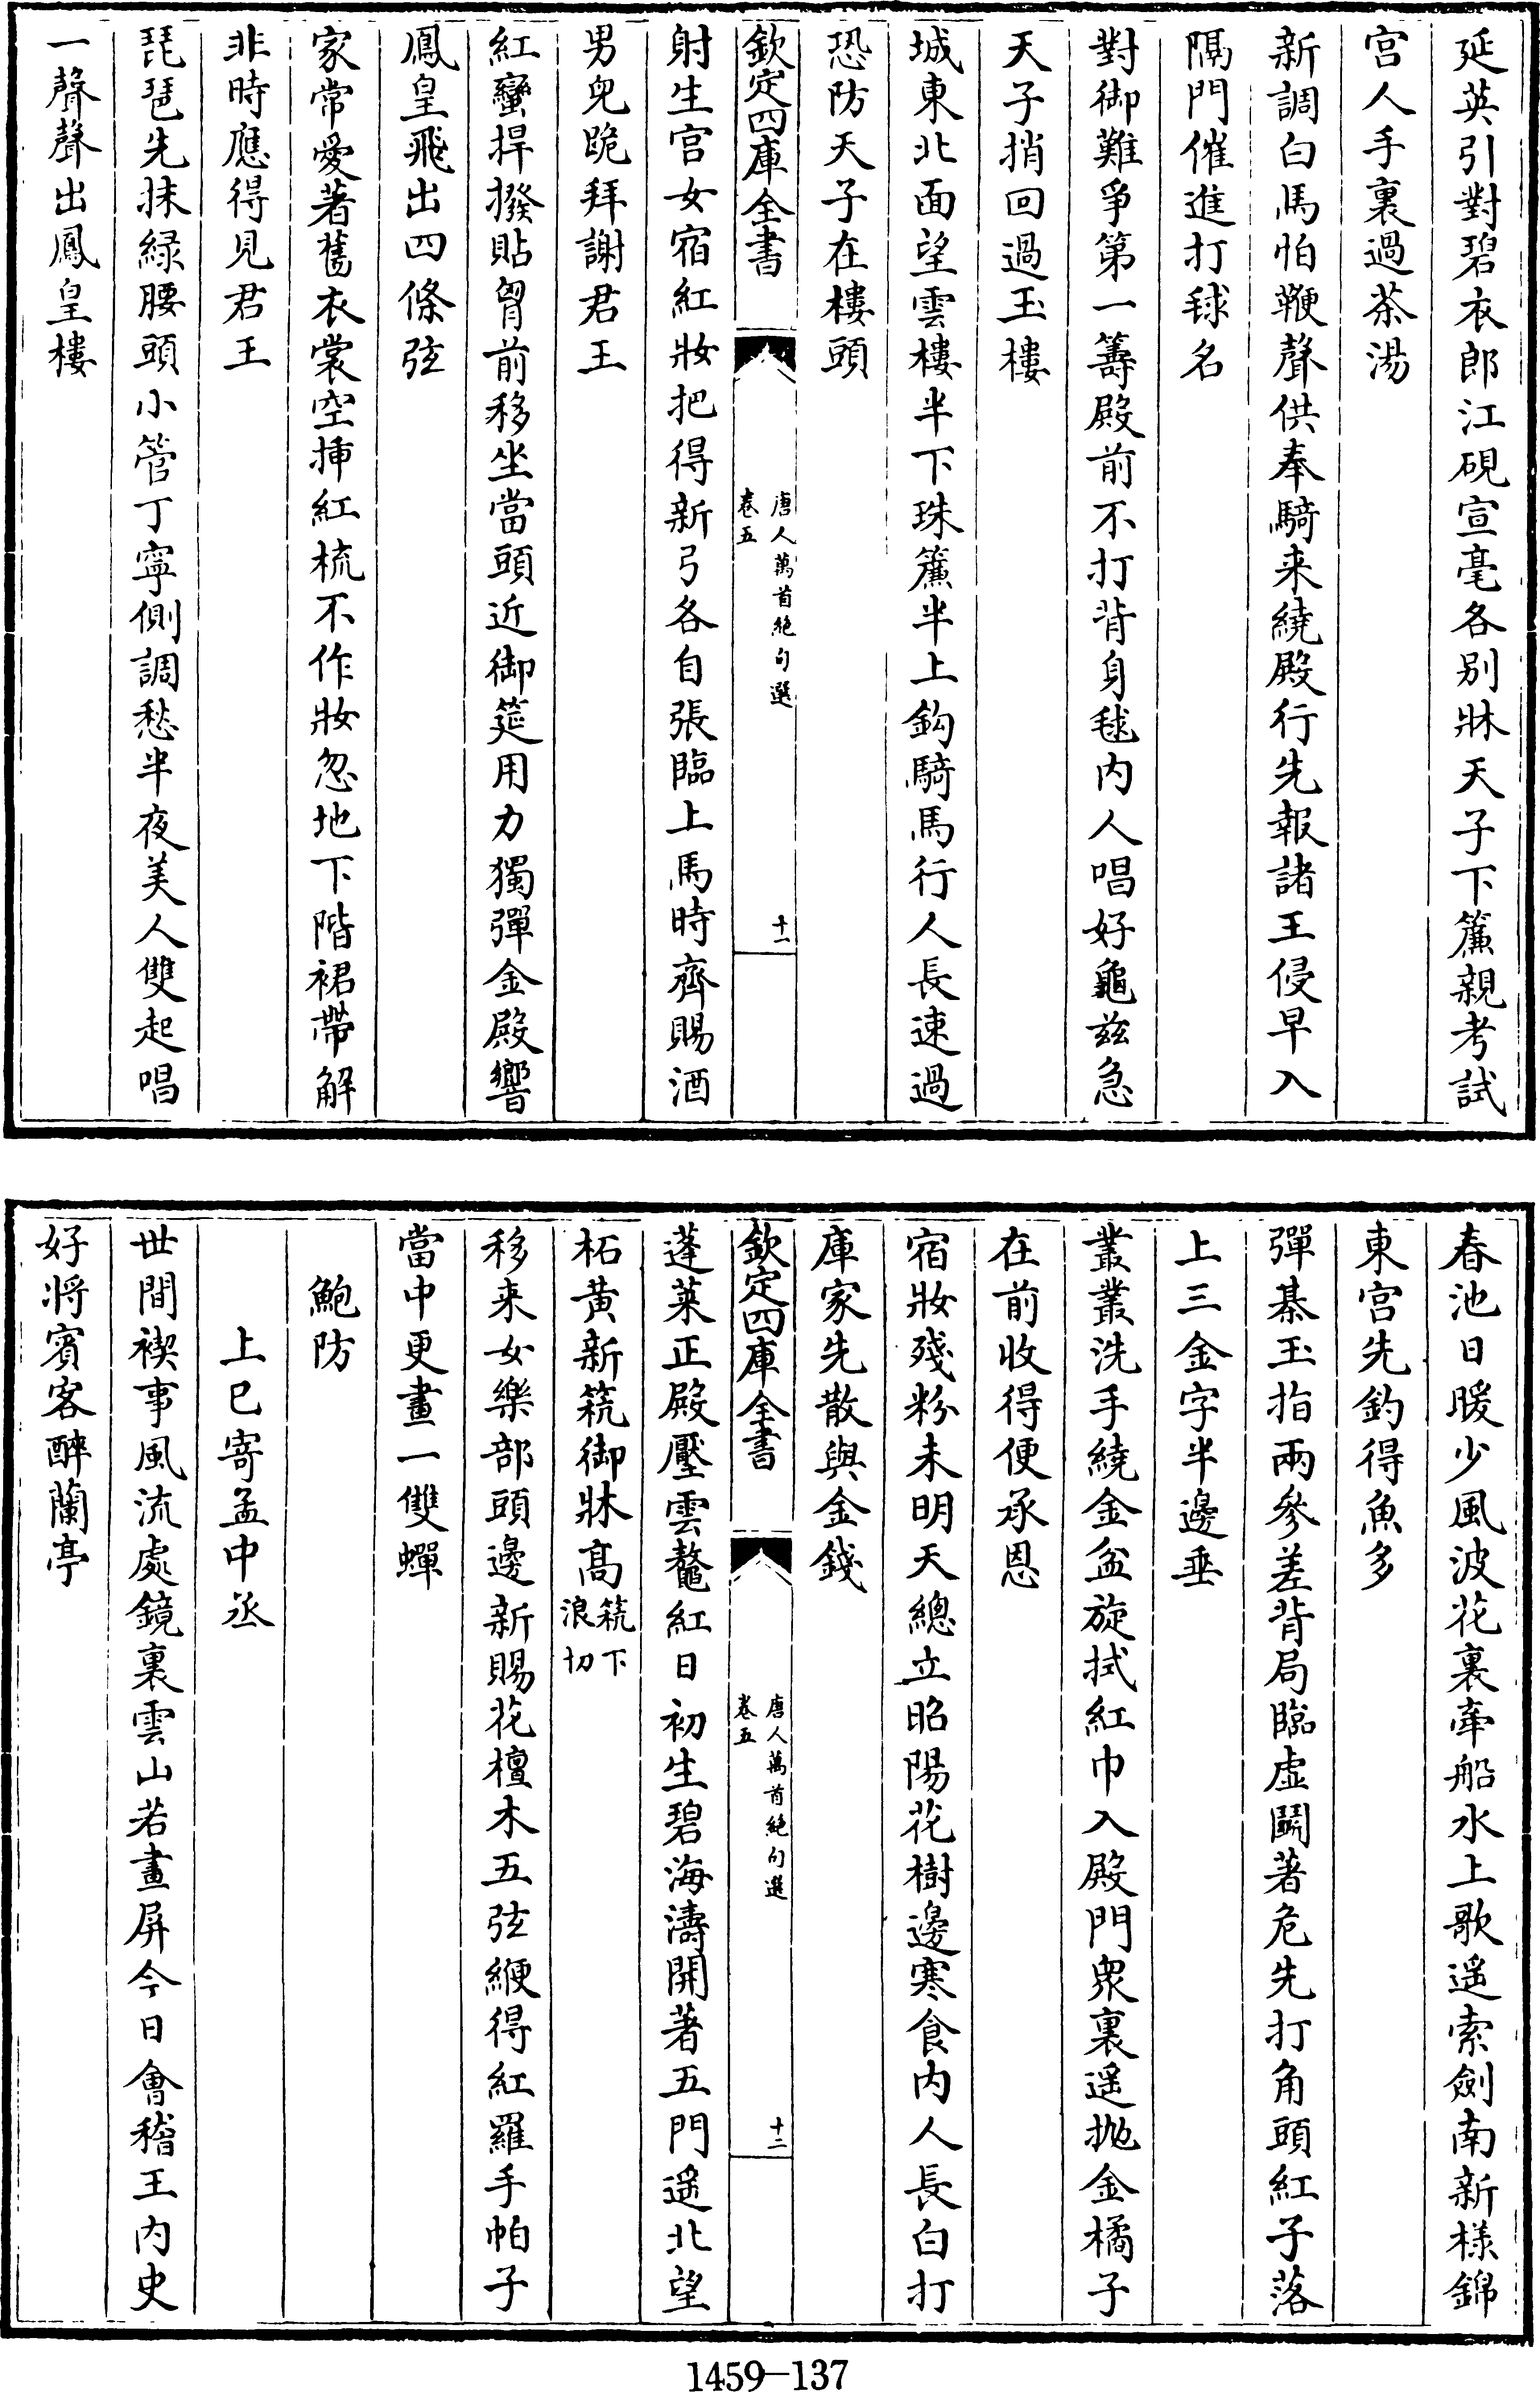 延英引對碧衣郎江硯宣毫各别牀天子下簾親考試
宫人手裏過茶湯
新調白馬怕鞭聲供奉騎来繞殿行先報諸王侵早入
隔門催進打毬名
對御難爭第一籌殿前不打背身毬内人唱好龜兹急
天子捎回過玉樓
城東北面望雲樓半下珠簾半上鈎騎馬行人長速過
恐防天子在樓頭
欽定四庫全書
唐人萬首絶句選
卷五
十一
射生宫女宿紅妝把得新弓各自張臨上馬時齊賜酒
男兒跪拜謝君王
紅蠻捍撥貼胷前移坐當頭近御筵用力獨彈金殿響
鳳皇飛出四條弦
家常愛著舊衣裳空揷紅梳不作妝忽地下階裙帶解
非時應得見君王
琵琶先抹緑腰頭小管丁寧側調愁半夜美人雙起唱
一聲聲出鳳皇樓
春池日暖少風波花裏牽船水上歌遥索劍南新様錦
東宫先釣得魚多
彈棊玉指兩參差背局臨虛鬭著危先打角頭紅子落
上三金字半邊垂
叢叢洗手繞金盆旋拭紅巾入殿門衆裏遥抛金橘子
在前收得便承恩
宿妝殘粉未明天總立昭陽花樹邊寒食内人長白打
庫家先散與金錢
欽定四庫全書
唐人萬首絶句選
卷五
十二
蓬萊正殿壓雲鼇紅日初生碧海濤開著五門遥北望
柘黄新䇶御牀高䇶下浪切
移来女樂部頭邊新賜花檀木五弦緶得紅羅手帕子
當中更畫一雙蟬
鮑防
上巳寄孟中丞
世間禊事風流處鏡裏雲山若畫屏今日會稽王内史
好將賓客醉蘭亭
1459—137